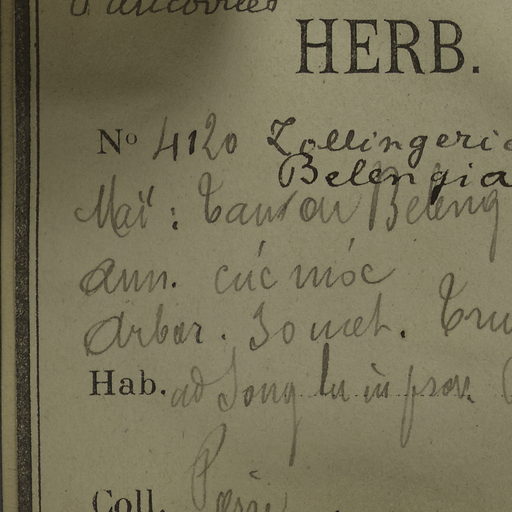 HERB.
No 4120 Zollingeri
Belengia
Maï: Beleng
ann. cúc móc
Arbor. 30 met.
Hab. ad Song lu in prov.
Coll.